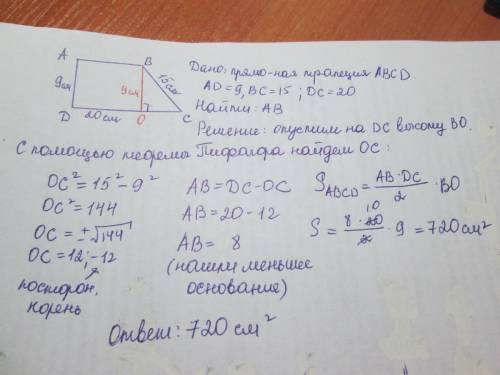 A
B
15см
9см
9см
D
20см
O
C
Дано: прямо-ная трапеция ABCD.
AD=9, BC=15 ; DC=20
Найти: AB
Решение: опустим на DC высоту BO.
С помощью теоремы Пифагора найдем OC:
OC² = 15² - 9²
OC² = 144
OC = ±√144
OC = 12; -12
посторон.
корень
AB = DC - OC
AB = 20 - 12
AB = 8
(нашли меньшее
основание)
S_ABCD = AB·DC/2 · BO
10
S = 8·20/2 · 9 = 720см²
Ответ: 720 см²